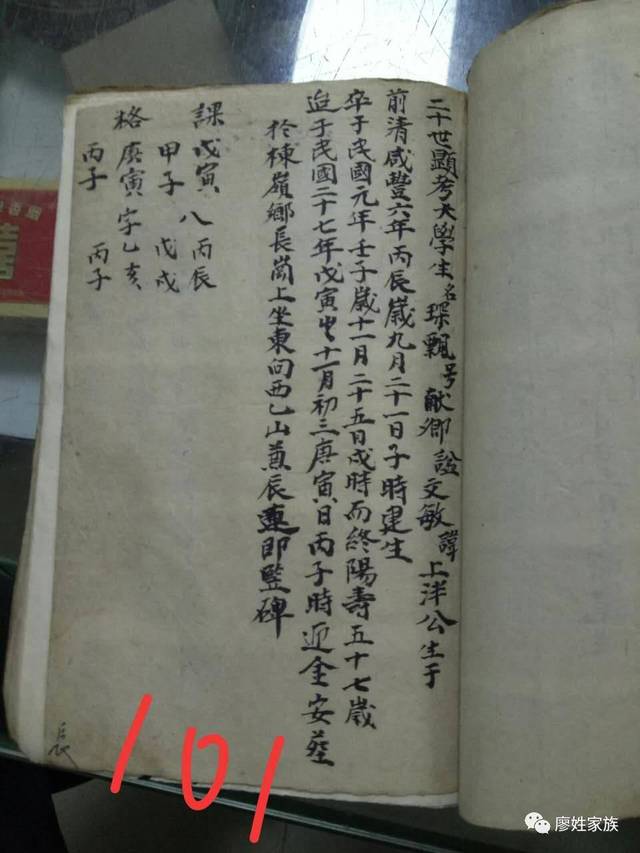 二十世顕考大學生名琛瓢号献卿諡文敏諱上洋公生于
前清咸豐六年丙辰歲九月二十一日子時建生
卒于民國元年壬子歲十一月二十五日戌時而終陽壽五十七歲
迨于民國二十七年戊寅十一月初三庚寅日丙子時迎金安葬
於棟嶺鄉長崗上坐東向西乙山兼辰連即豎碑
課 戊寅 八 丙辰
甲子 戊戌
格 庚寅 字 乙亥
丙子 丙子
長
101
廖姓家族